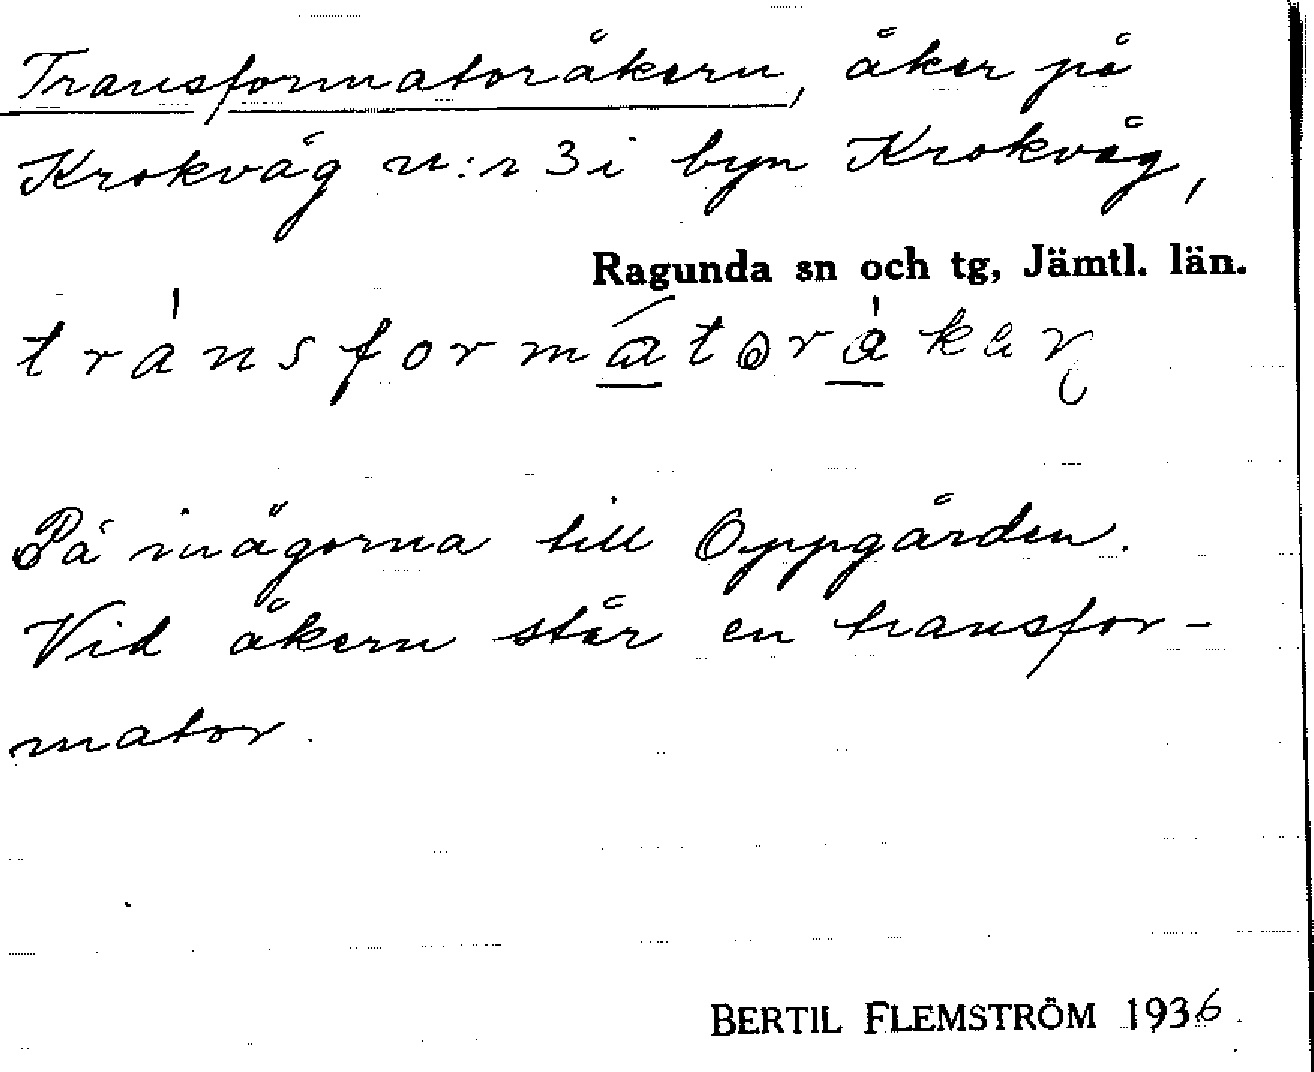 Transformatoråkern, åker på
Krokvåg n:r 3 i byn Krokvåg,
Ragunda sn och tg, Jämtl. län.
På inägorna till Oppgården.
Vid åkern står en transfor-
mator.
BERTIL FLEMSTRÖM 1936